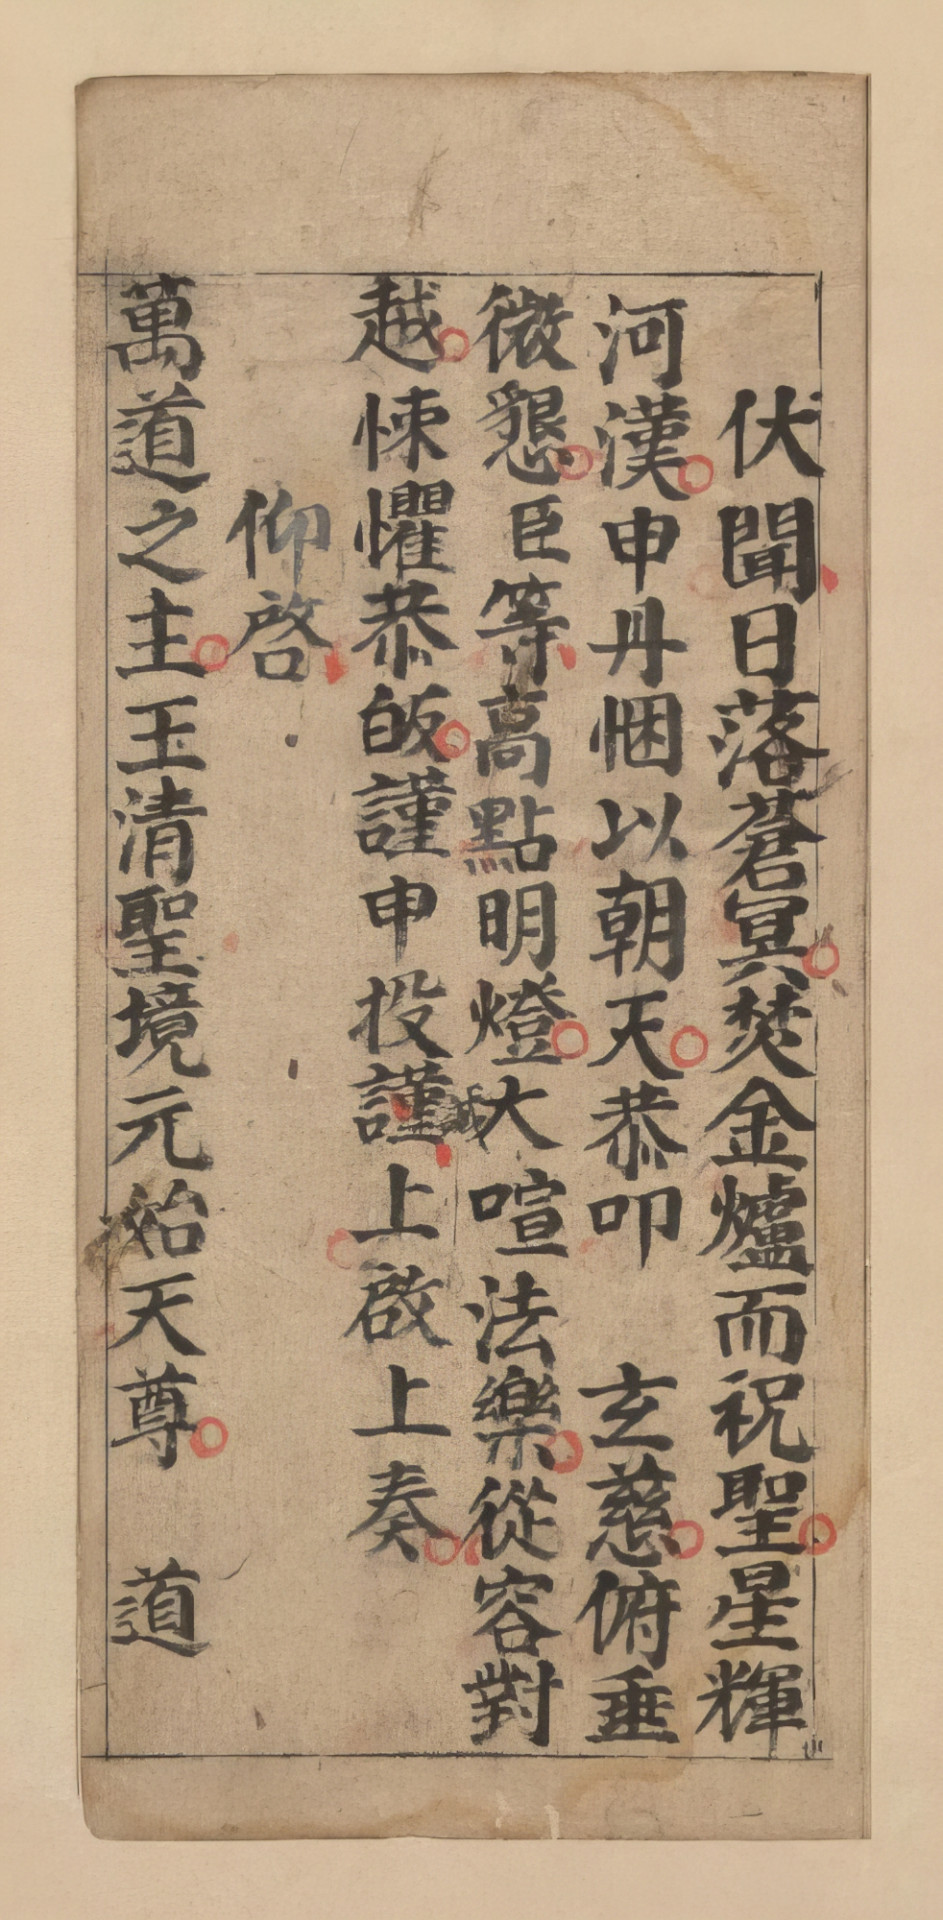 伏聞日落蒼冥焚金爐而祝聖星輝
河漢申丹悃以朝天恭叩 玄慈俯垂
微懇臣等高點明燈大喧法樂從容對
越悚懼恭皈謹申投謹誠上啟上奏
仰啓
萬道之主玉清聖境元始天尊 道